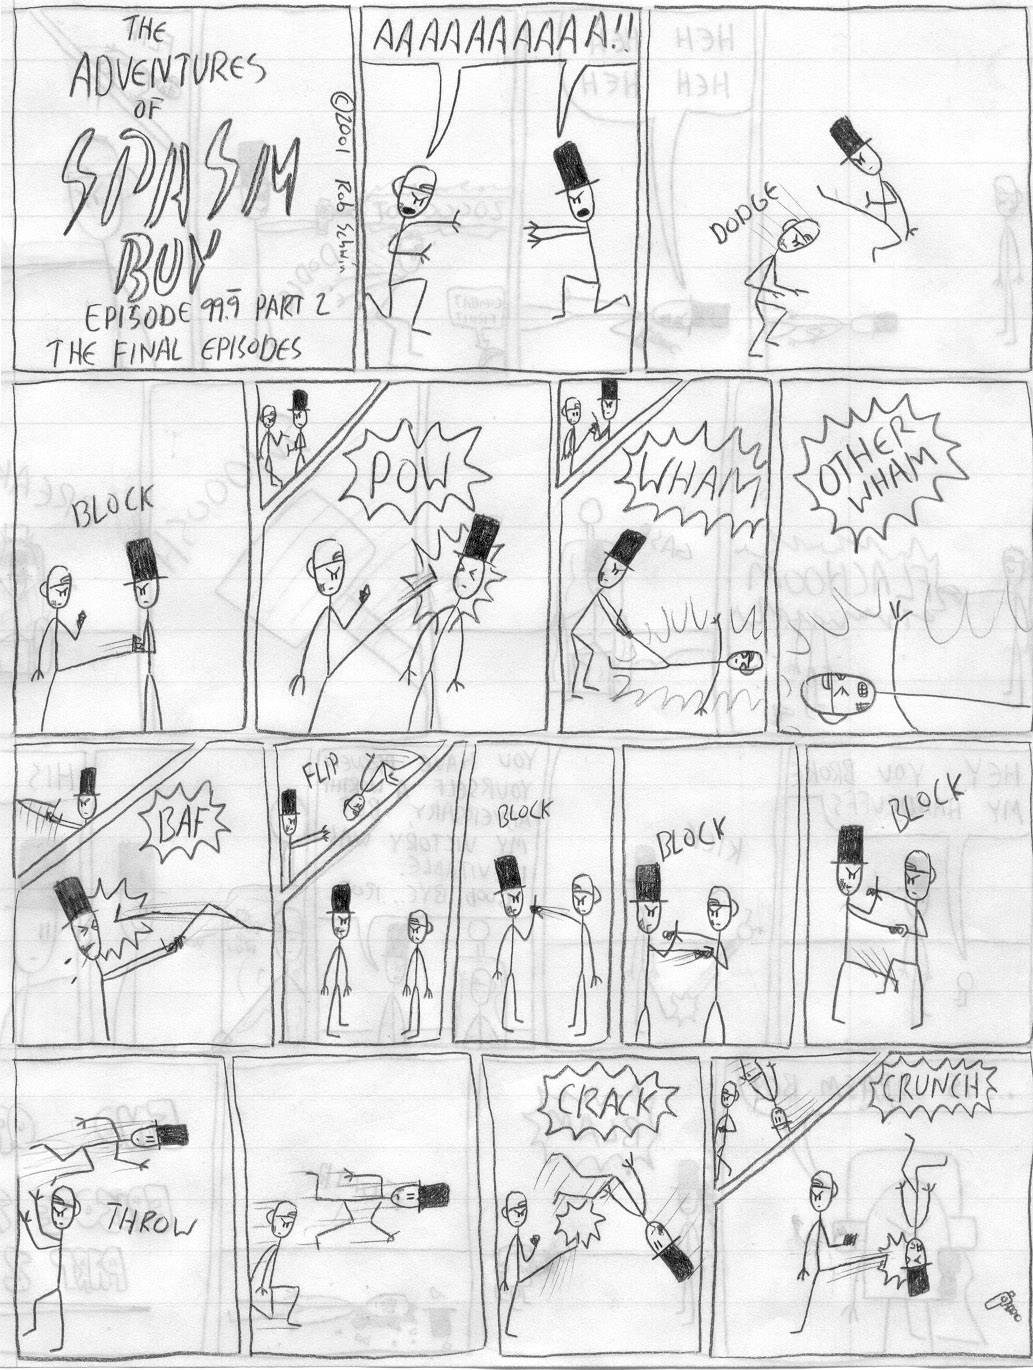 THE
ADVENTURES
OF
SPASM
BOY
EPISODE 99.9 PART 2
THE FINAL EPISODES
©2001 Rob Schwin
AAAAAAAAAA!!
DODGE
BLOCK
POW
WHAM
OTHER
WHAM
BAF
FLIP
BLOCK
BLOCK
BLOCK
THROW
CRACK
CRUNCH